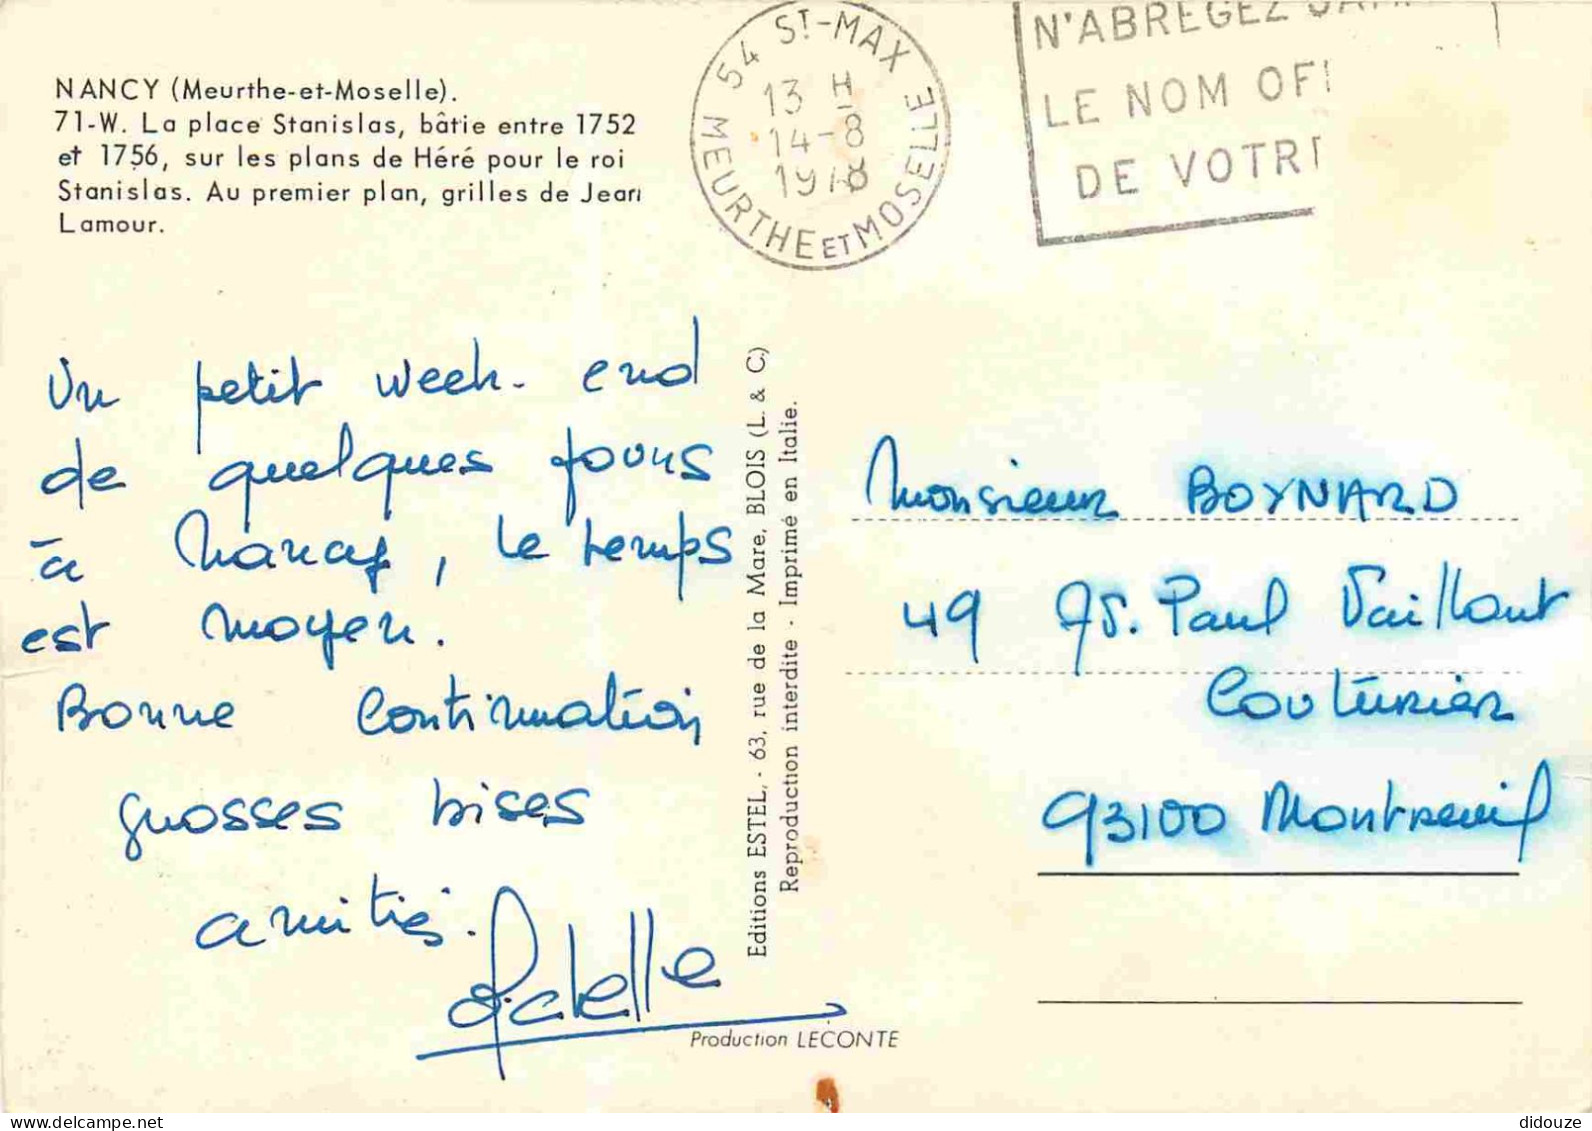 NANCY (Meurthe-et-Moselle).
71-W. La place Stanislas, bâtie entre 1752
et 1756, sur les plans de Héré pour le roi
Stanislas. Au premier plan, grilles de Jean
Lamour.
54 ST-MAX
13 H
14-8
1978
MEURTHE ET MOSELLE
N'ABREGEZ JAM
LE NOM OFI
DE VOTR
Un petit week-end
de quelques jours
à Nancy, le temps
est moyen.
Bonne continuation
grosses bises
amitiés.
Editions ESTEL, - 63, rue de la Mare, BLOIS (L. & C.)
Reproduction interdite - Imprimé en Italie.
Monsieur BOYNARD
49 AV. Paul Vaillant
Couturier
93100 Montreuil
Production LECONTE
didouze